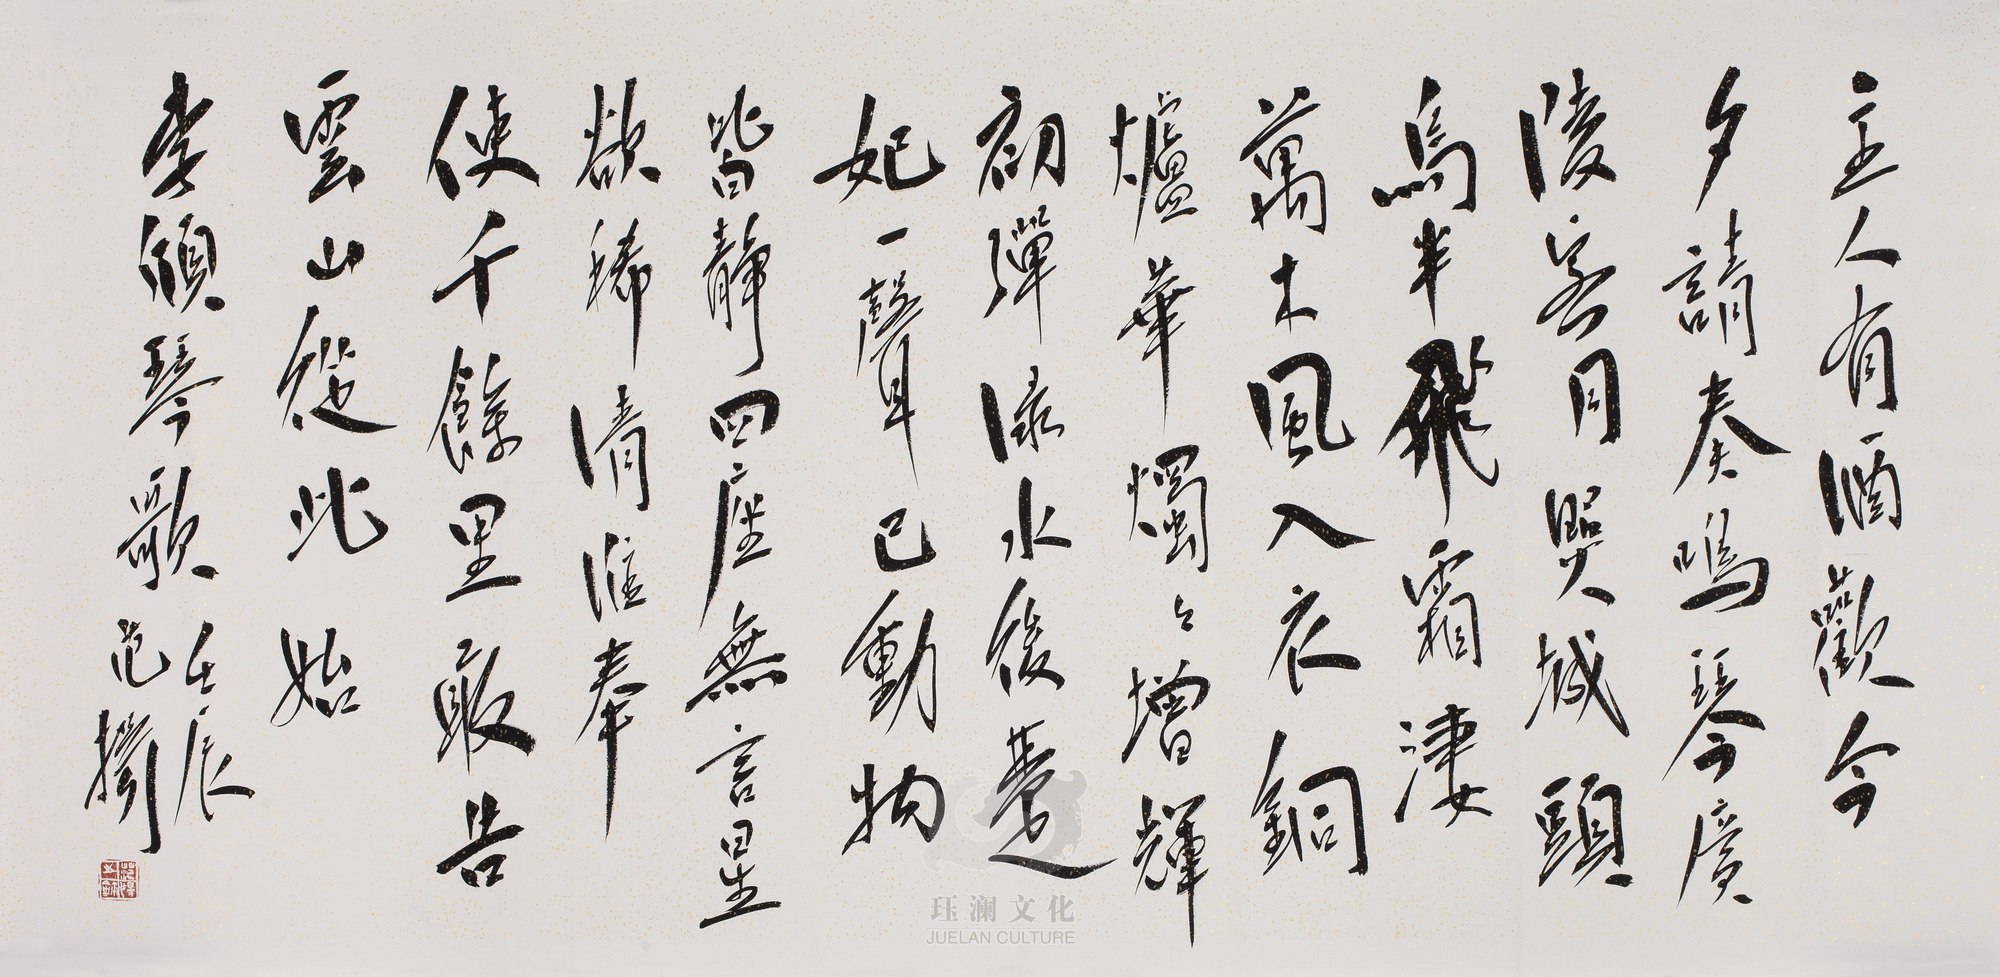 主人有酒歡今
夕請奏鳴琴廣
陵客月照城頭
烏半飛霜淒
萬木風入衣銅
爐華燭々增輝
初彈淥水後楚
妃一聲已動物
皆靜四座無言星
欲稀清淮奉
使千餘里敢告
雲山從此始
李頎琴歌
壬辰
范
珏澜文化
JUELAN CULTURE